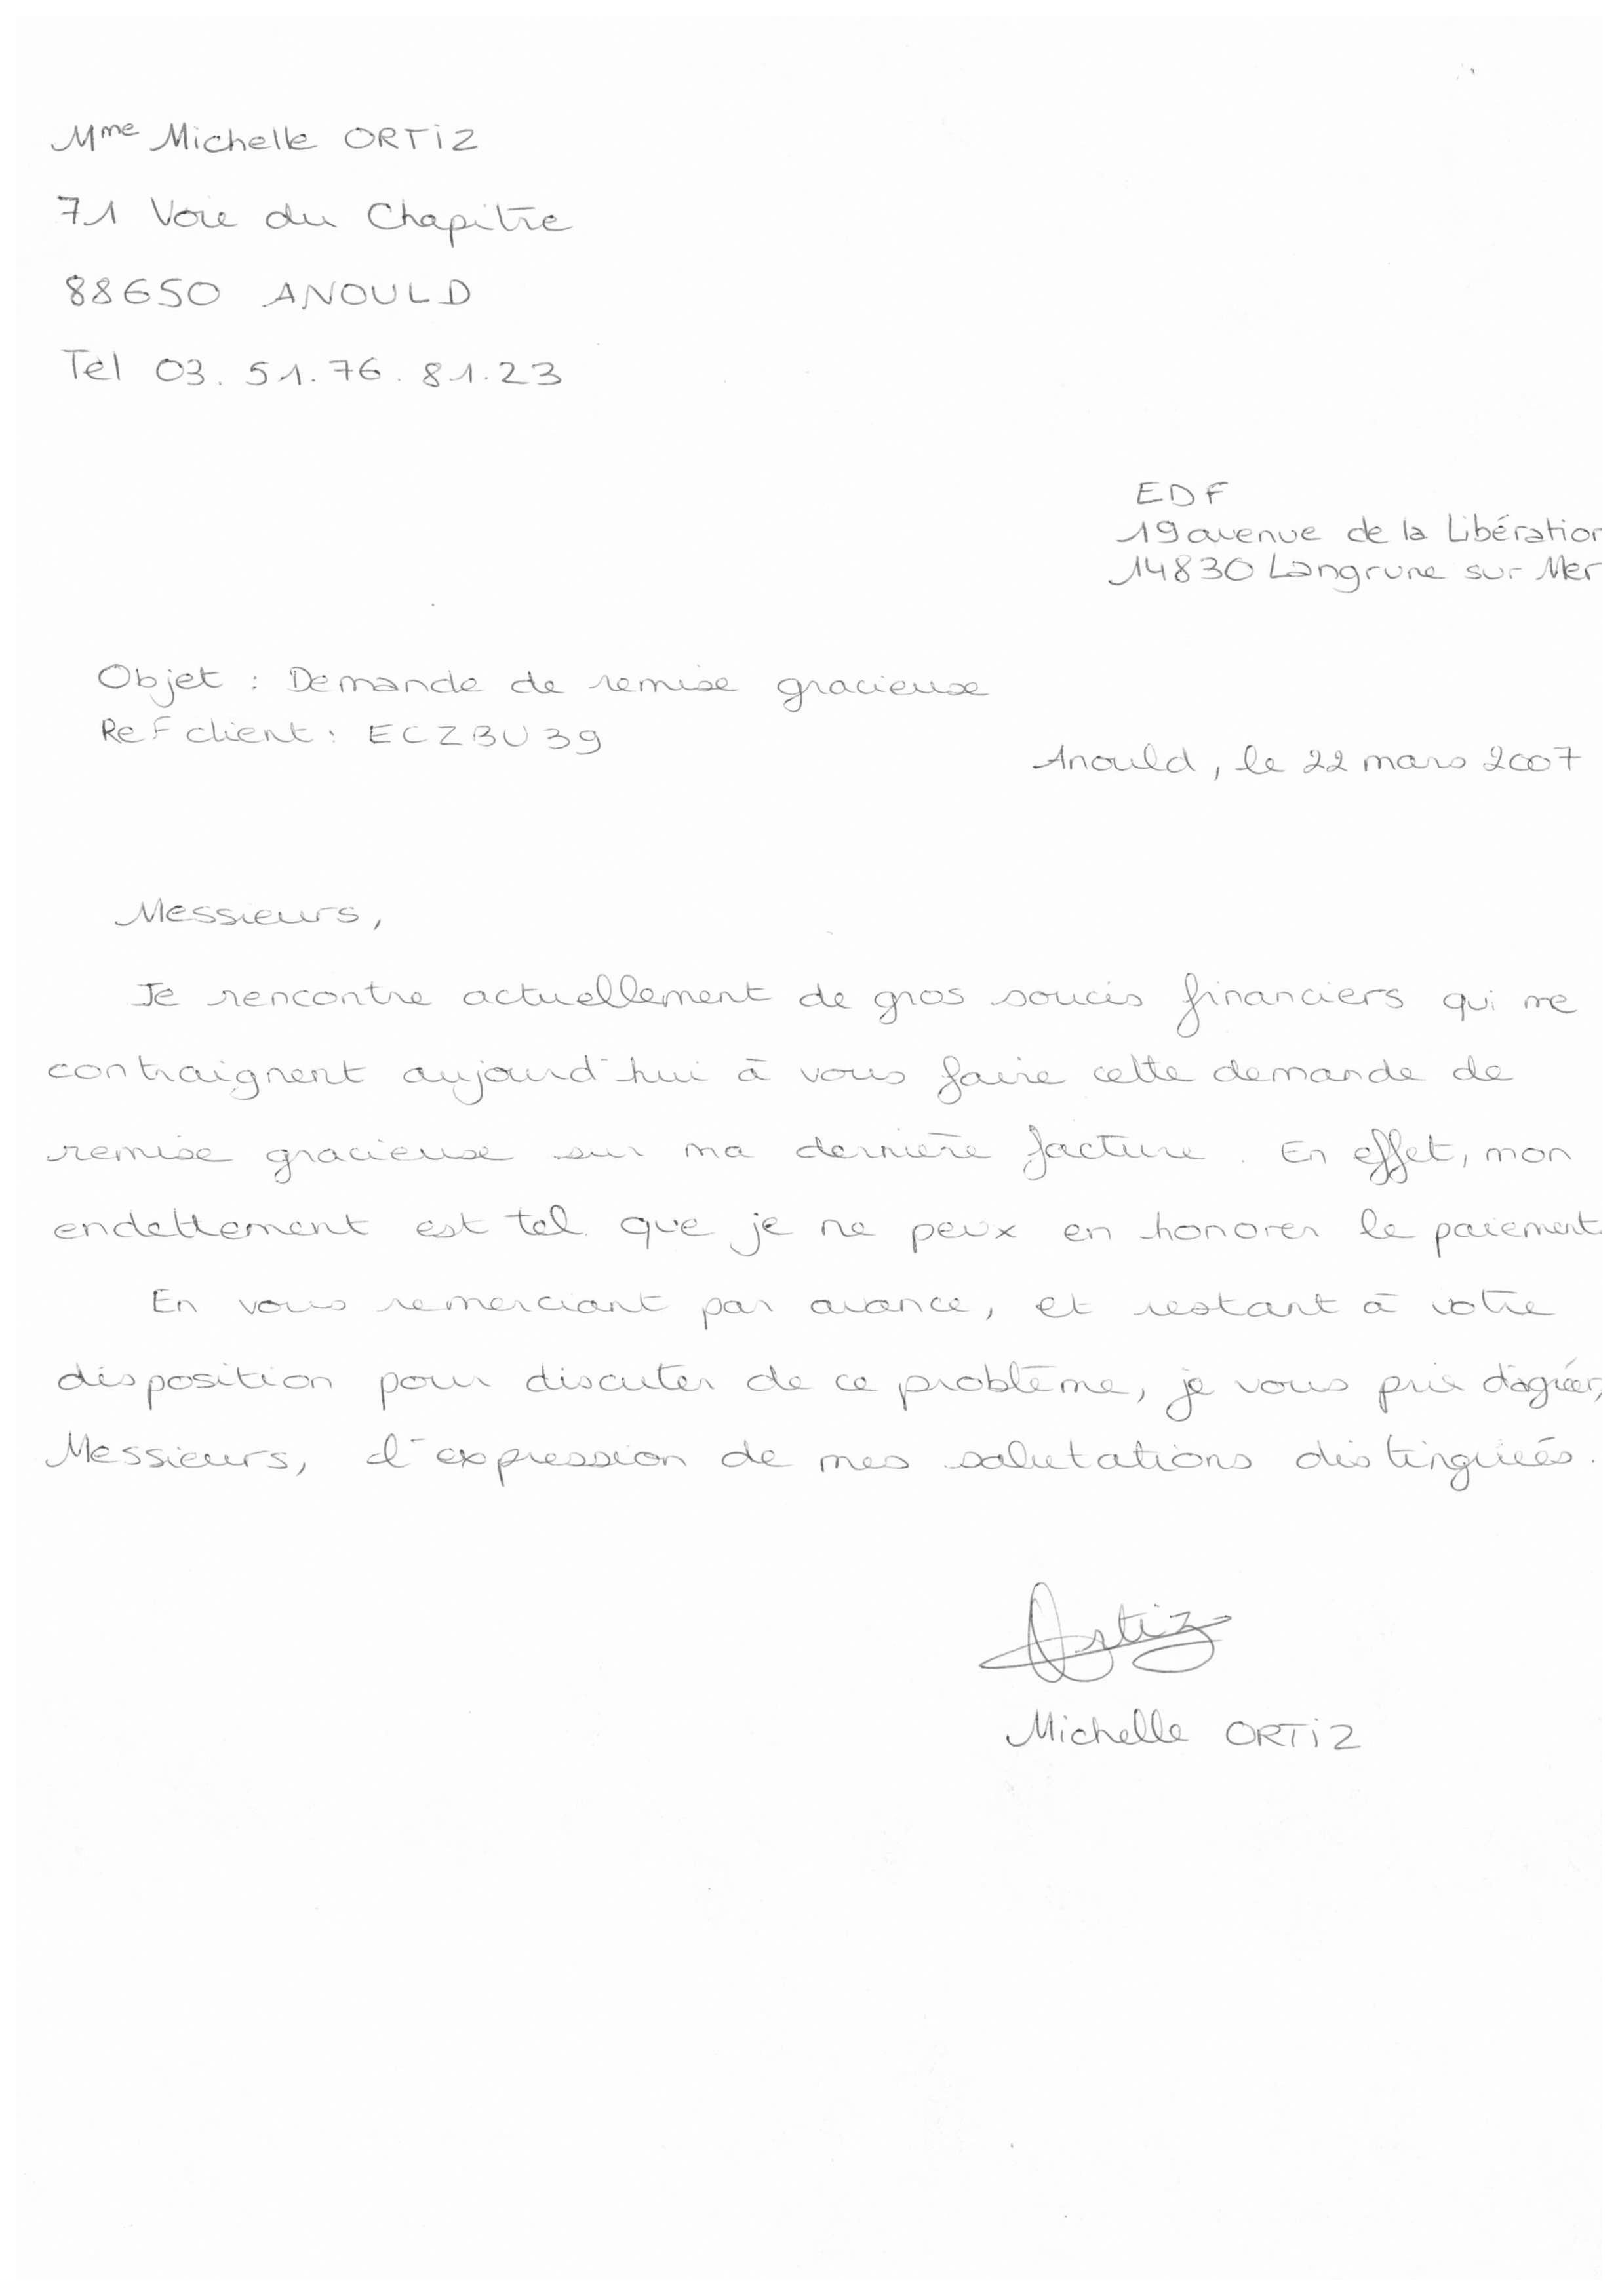 Mme Michelle ORTIZ
71 Voie du Chapitre
88650 ANOULD
Tel 03.51.76.81.23
EDF
19 avenue de la Libération
14830 Langrune sur Mer
Objet : Demande de remise gracieuse
Ref client : ECZBU39
Anould, le 22 mars 2007
Messieurs,
Je rencontre actuellement de gros soucis financiers qui me
contraignent aujourd'hui à vous faire cette demande de
remise gracieuse sur ma dernière facture. En effet, mon
endettement est tel que je ne peux en honorer le paiement.
En vous remerciant par avance, et restant à votre
disposition pour discuter de ce problème, je vous prie d'agréer,
Messieurs, l'expression de mes salutations distinguées.
Ortiz
Michelle ORTIZ